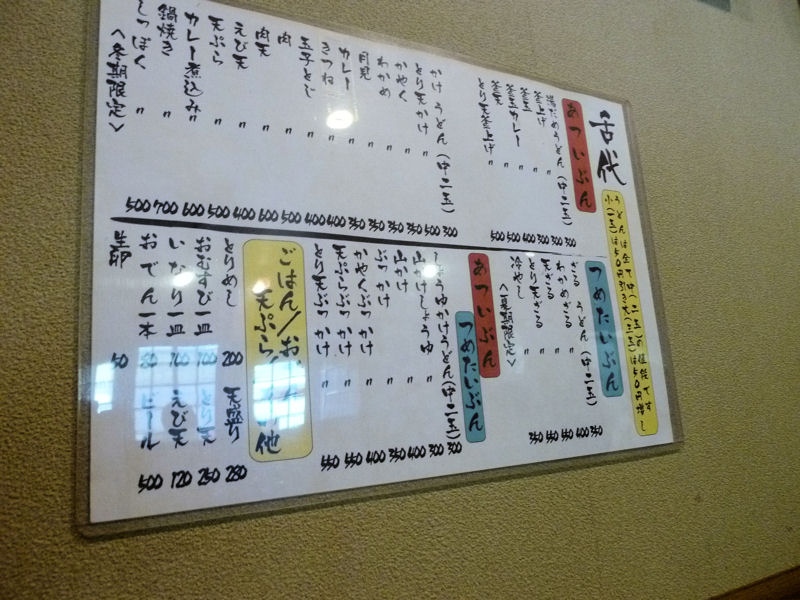 舌代
うどんは全て中(二玉)の値段です
小(一玉)は50円引き大(三玉)は50円増し
あついぶん
湯だめうどん(中・二玉) 300
釜上げ 〃 300
釜玉 〃 300
釜玉カレー 〃 400
釜天 〃 500
とり天釜上げ 〃 500
かけうどん(中・二玉) 300
とり天かけ 〃 500
かやく 〃 350
わかめ 〃 350
月見 〃 350
カレー 〃 350
きつね 〃 400
玉子とじ 〃 400
肉 〃 500
肉天 〃 600
えび天 〃 400
天ぷら 〃 500
カレー煮込み 〃 600
鍋焼き 〃 700
しっぽく 〃 500
〈冬期限定〉
つめたいぶん
ざるうどん(中・二玉) 350
わかめざる 〃 400
天ざる 〃 550
とり天ざる 〃 550
冷やし 〃 350
期限定〉
あついぶん
つめたいぶん
しょうゆかけうどん(中・二玉) 300 300
山かけしょうゆ 〃 400
山かけ 〃 350
ぶっかけ 〃 350
かやくぶっかけ 〃 400
天ぷらぶっかけ 〃 550
とり天ぶっかけ 〃 550
ごはん/お
天ぷら/ 他
とりめし 200 天盛り 280
おむすび一皿 100 とり天 250
いなり一皿 160 えび天 120
おでん一本 80 ビール 500
生卵 50